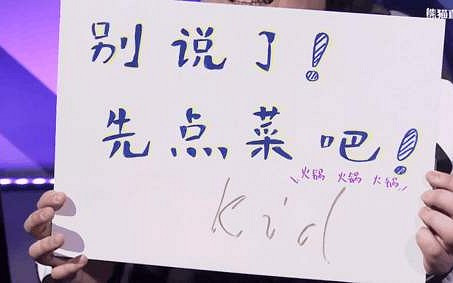 熊猫直
别说了!
先点菜吧!
火锅 火锅 火锅
kid